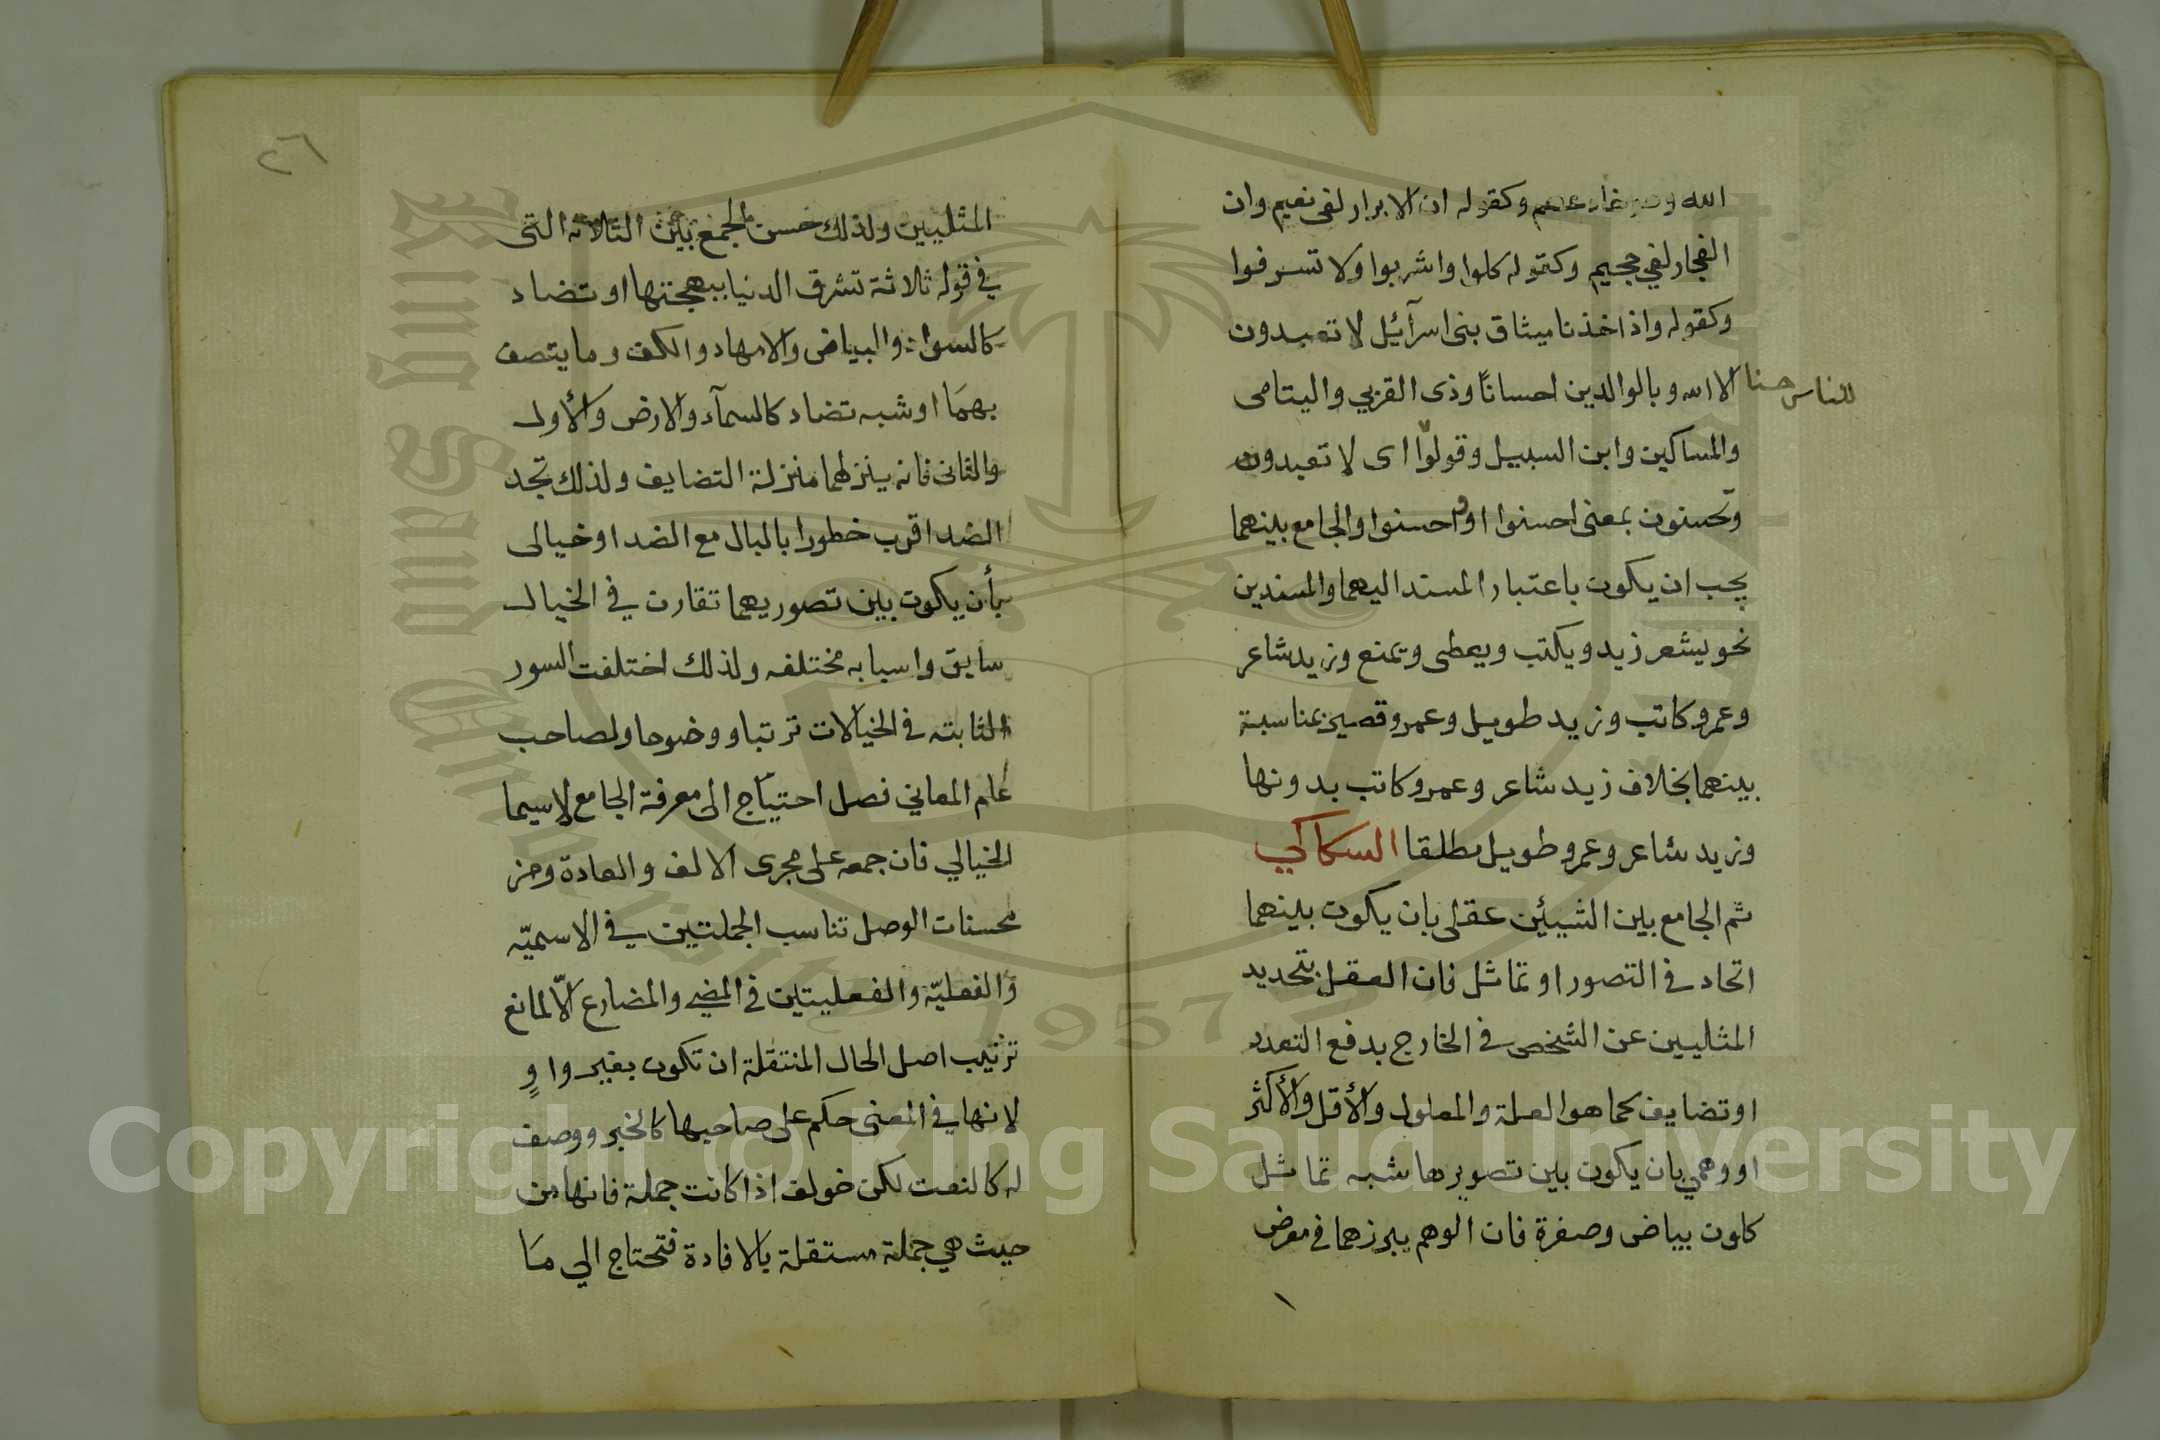 الله وهو خادعهم وكقوله ان الابرار لفى نعيم وان
الفجار لفي جحيم وكقوله كلوا واشربوا ولا تسرفوا
وكقوله واذ اخذنا ميثاق بنى اسرآئيل لا تعبدون
الا الله وبالوالدين احسانًا وذى القربي واليتامى
للناس حسنا
والمساكين وابن السبيل وقولوا اى لا تعبدون
وتحسنون بمعنى احسنوا او واحسنوا والجامع بينهما
يجب ان يكون باعتبار المسند اليهما والمسندين
نحو يشعر زيد ويكتب ويعطى ويمنع وزيد شاعر
وعمرو كاتب وزيد طويل وعمرو قصير بمناسبة
بينهما بخلاف زيد شاعر وعمرو كاتب بدونها
وزيد شاعر وعمرو طويل مطلقا السكاكي
ثم الجامع بين الشيئين عقلى بان يكون بينهما
اتحاد في التصور او تماثل فان العقل بتجديد
المثليين عن الشخص في الخارج يدفع التعدد
او تضايف كما هو العلة والمعلول والأقل والأكثر
او وهمي بان يكون بين تصويرها شبه تماثل
كلون بياض وصفرة فان الوهم يبرزهما في معرض
٢٦
المثليين ولذلك حسن الجمع بين الثلاثة التى
في قوله ثلاثة تشرق الدنيا ببهجتها او تضاد
كالسواد والبياض والامهاد والكف وما يتصف
بهمَا او شبه تضاد كالسمآء والارض والأول
والثانى فانه ينزلهما منزلة التضايف ولذلك تجد
الضد اقرب خطورا بالبال مع الضد او خيالى
بأن يكون بين تصوريهما تقارن في الخيال
سابق واسبابه مختلفه ولذلك اختلفت السور
الثابته في الخيالات ترتبا ووضوحا ولصاحب
علم المعاني فصل احتياج الى معرفة الجامع لاسيما
الخيالي فان جمعه على مجرى الالف والعادة ومن
محسنات الوصل تناسب الجملتين في الاسميّه
والفعليّه والفعليتين في المضي والمضارع الّا لمانع
ترتيب اصل الحال المنتقلة ان تكون بغير واوٍ
لانها في المعنى حكم على صاحبها كالخبر ووصف
له كالنعت لكن خولف اذا كانت جملة فانها من
حيث هي جملة مستقلة بالافادة فتحتاج الي مَا
Copyright © King Saud University
King Saud University
1957